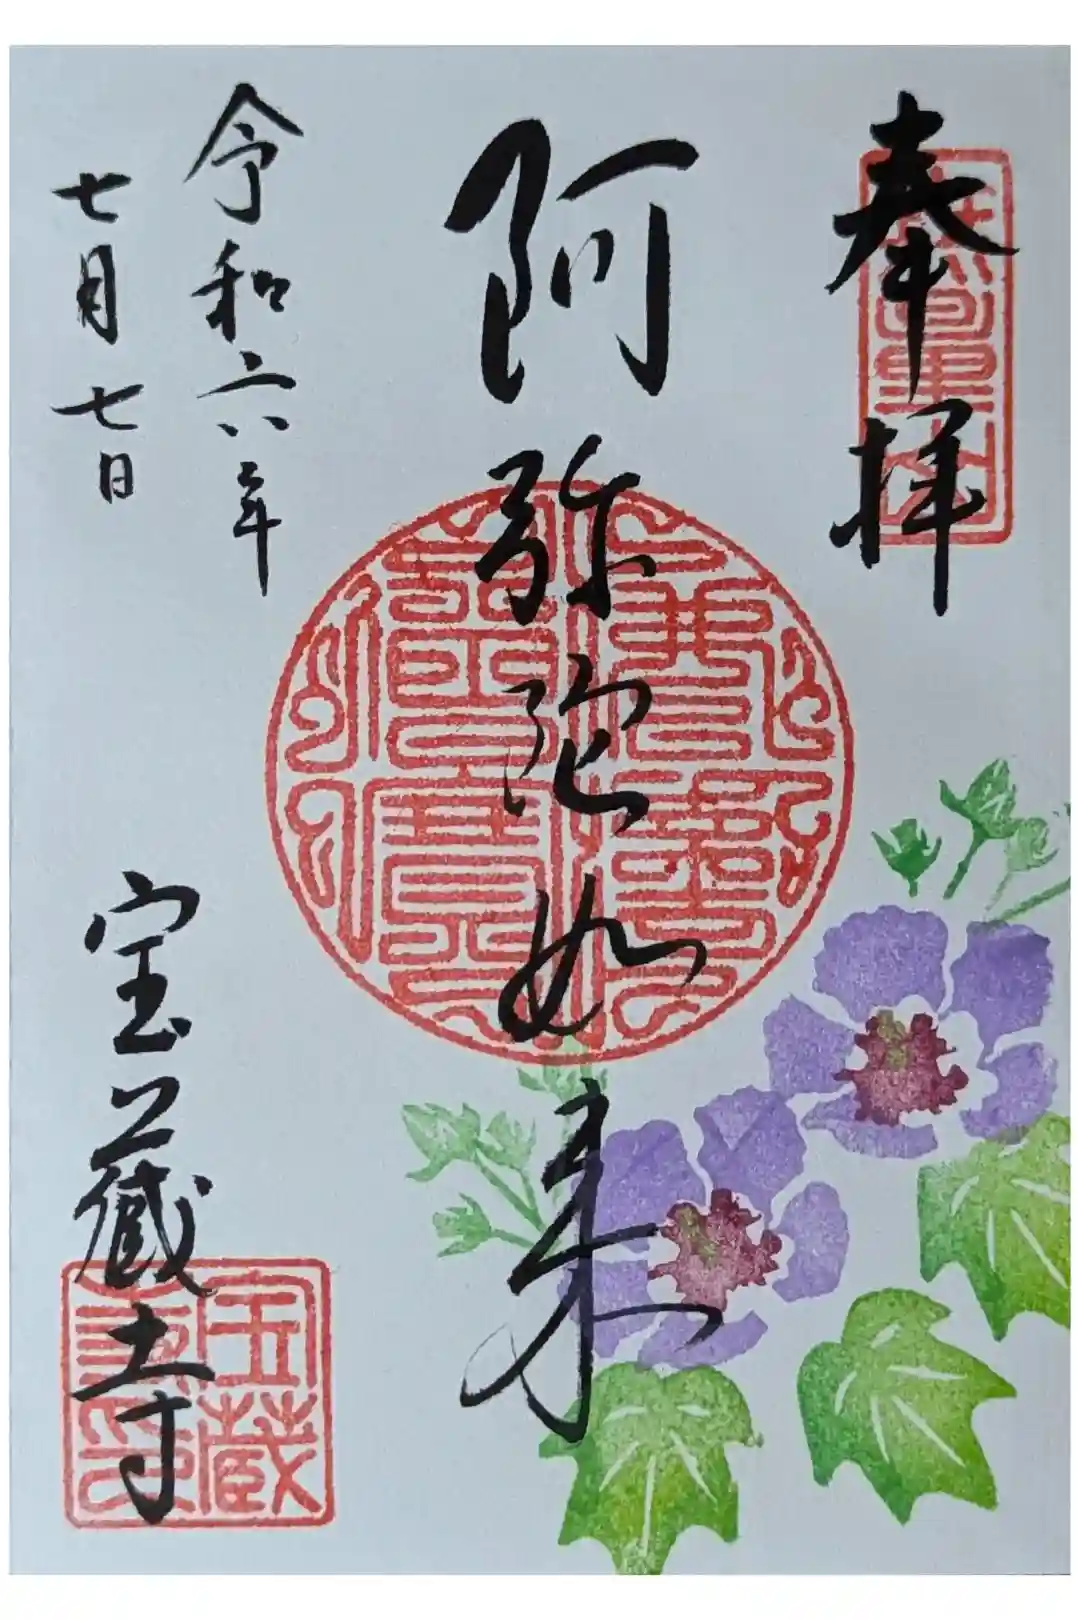 奉拝
阿弥陀如来
令和六年
七月七日
宝蔵寺
宝蔵寺印